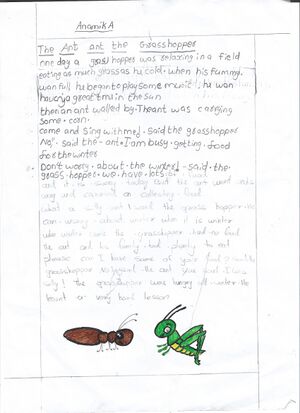 AnamikA
The Ant ant the Grasshopper
one day a grasshopper was relaxing in a field
eating as much grass as he cold. when his tummy
wan full he began to play some music! he wan
having a great tmi in the sun
then an ant walked by. The ant was carying
some. corn.
came and sing with me!. said the grasshopper
No". said the -ant. I am busy. getting. food
for the winter
Don't worry. about. the winter!. said. the.
grass. hopper. we. have. lots. food
and it is sunny today but the ant went
and carried on collecting food
what a silly ant! said the grass hopper. he
can. worry. about winter when it is winter
when winter came the grasshopper had no food
the ant and his family had plenty to eat
please can I have some of your food? said the
grasshopper No said the ant
silly! The grasshopper was hungry all winter. He
learnt a very hard lesson